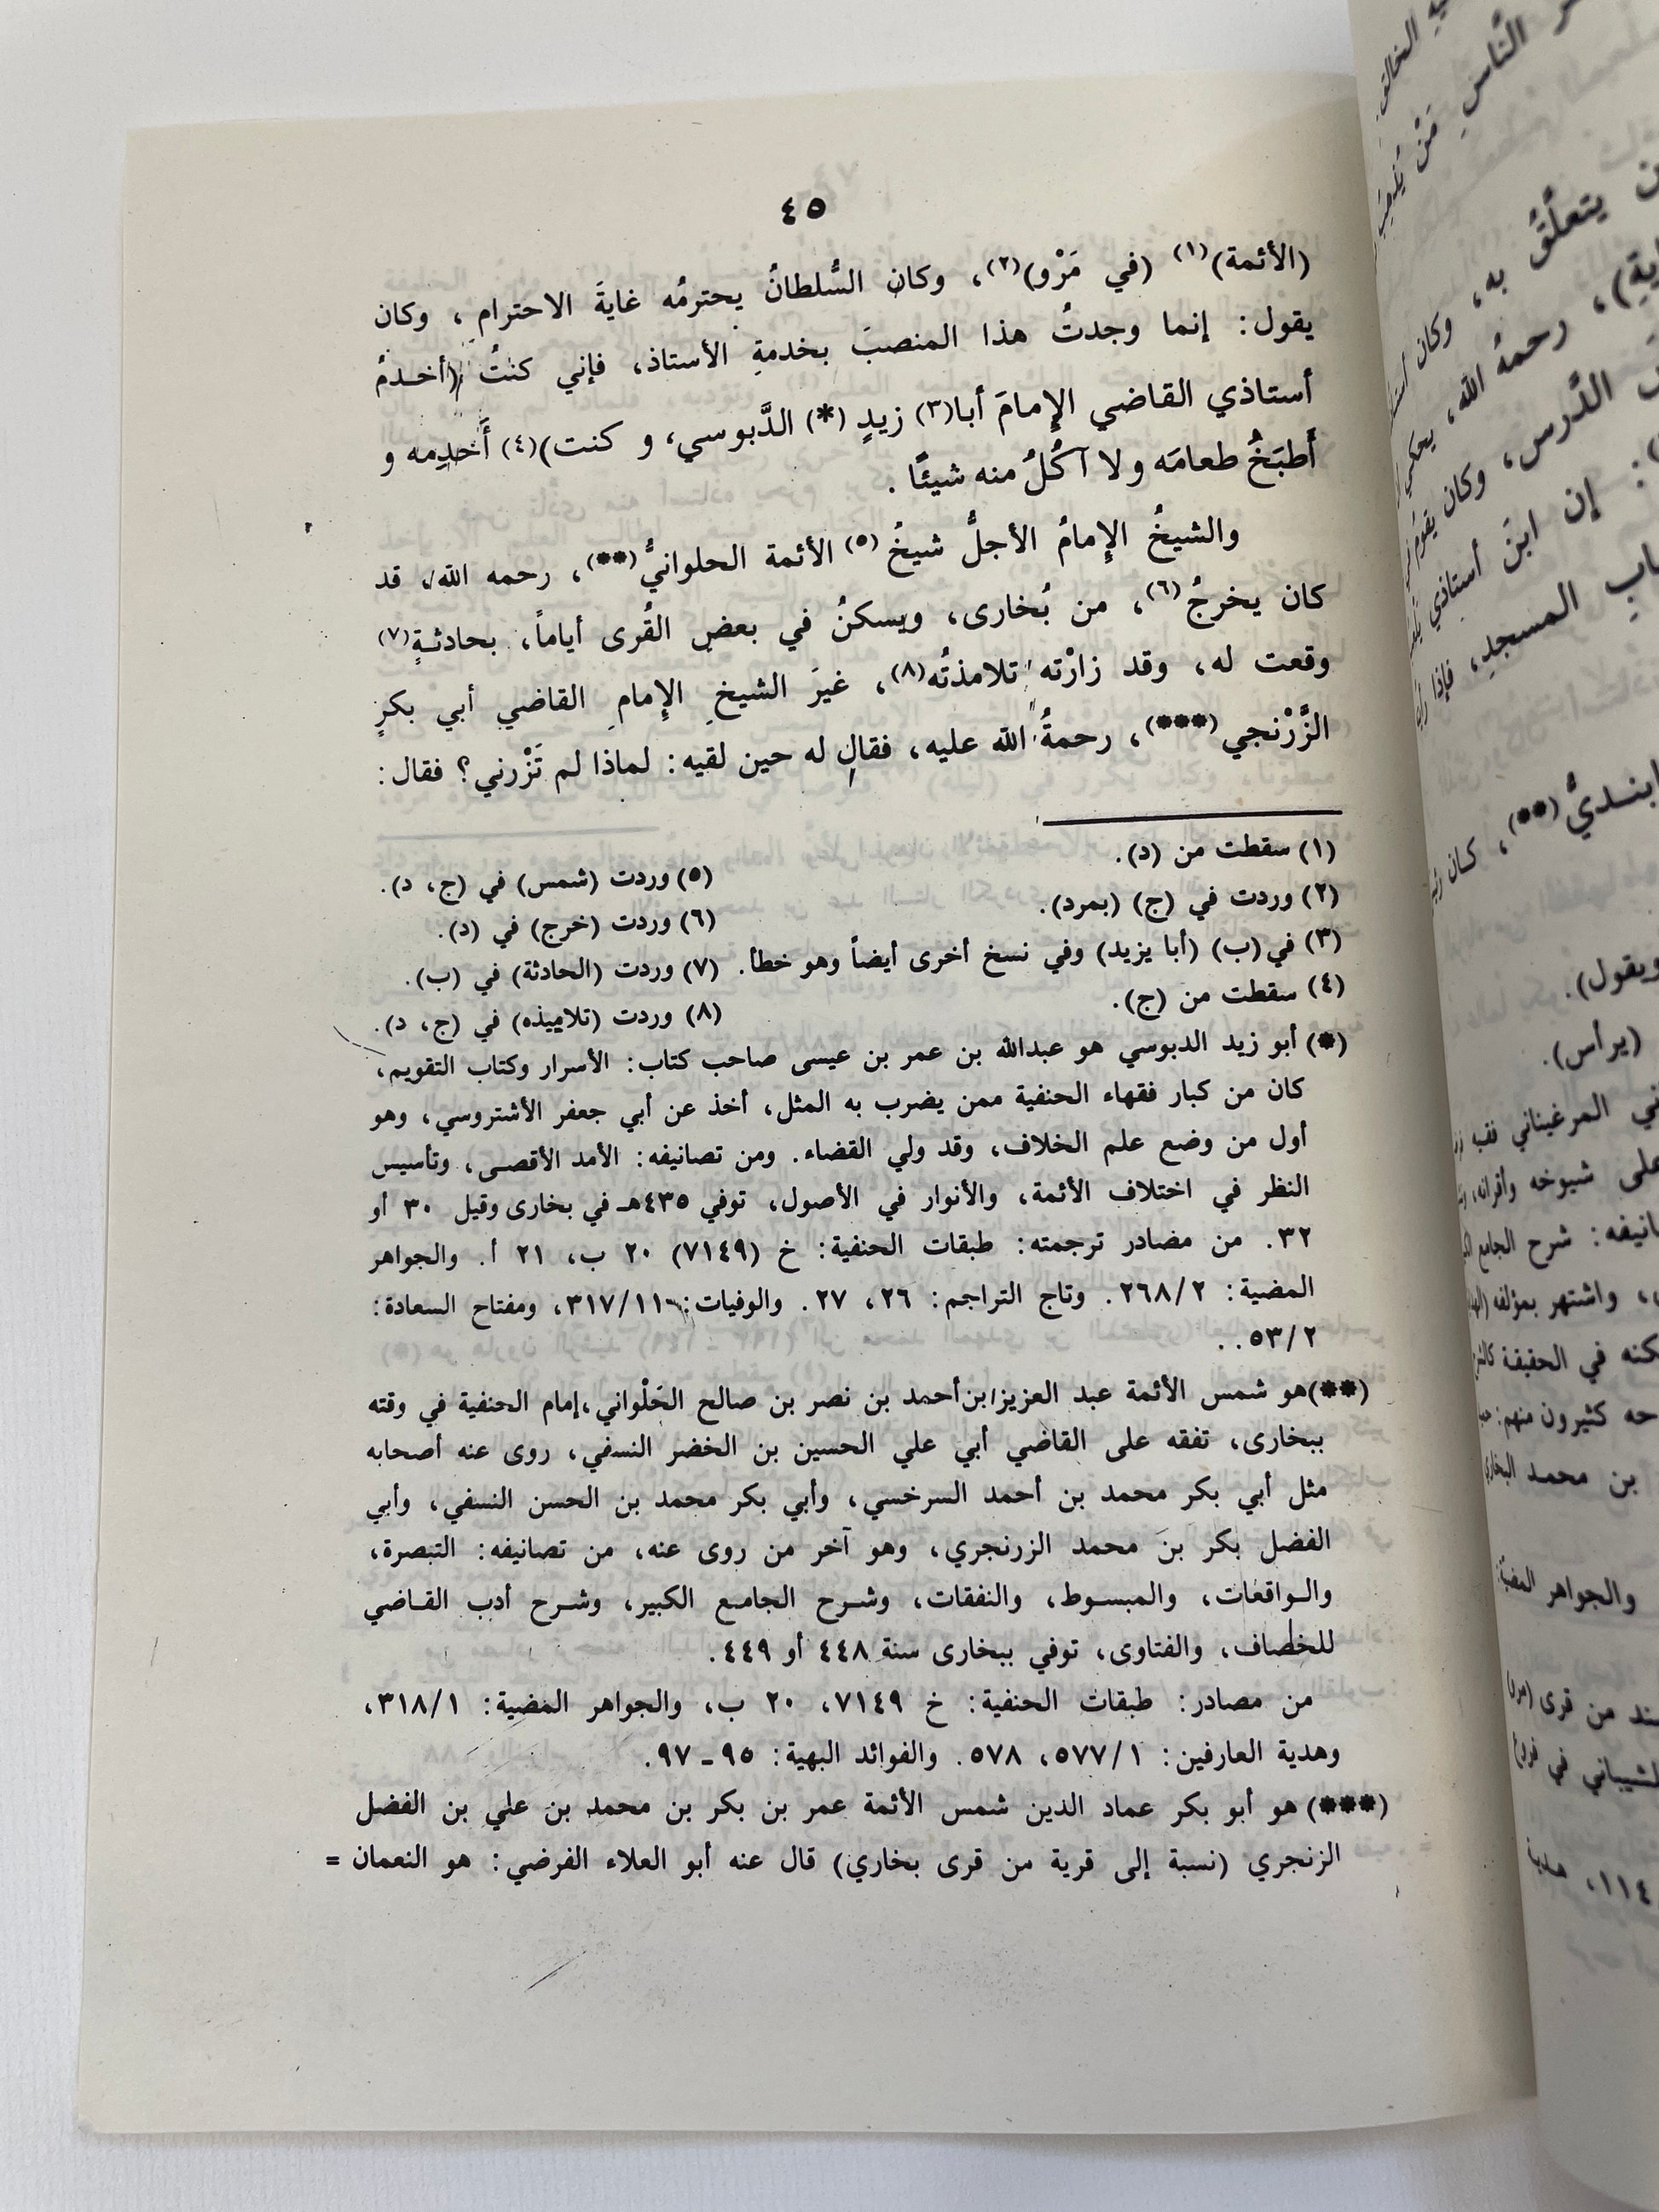 ٤٥
(الأئمة)(١) (في مَرْو)(٢)، وكان السُّلطانُ يحترمُه غايةَ الاحترامِ، وكان
يقول: إنما وجدتُ هذا المنصبَ بخدمةِ الأستاذ، فإني كنتُ (أخدمُ
أستاذي القاضي الإِمامَ أبا(٣) زيدٍ (*) الدَّبوسي، و كنت)(٤) أَخدِمه و
أَطبَخُ طعامَه ولا آكُلُ منه شيئًا.
والشيخُ الإِمامُ الأجلُّ شيخُ(٥) الأئمة الحلوانيُّ(**)، رحمه الله، قد
كان يخرجُ(٦)، من بُخارى، ويسكنُ في بعضِ القُرى أياماً، بحادثةٍ(٧)
وقعت له، وقد زارْته تلامذتُه(٨)، غيرَ الشيخِ الإِمامِ القاضي أبي بكرٍ
الزَّرْنجي(***)، رحمةُ الله عليه، فقال له حين لقيه: لماذا لم تَزْرني؟ فقال:
(١) سقطت من (د).
(٢) وردت في (ج) (بمرد).
(٣) في (ب) (أبا يزيد) وفي نسخ أخرى أيضاً وهو خطأ.
(٤) سقطت من (ج).
(٥) وردت (شمس) في (ج، د).
(٦) وردت (خرج) في (د).
(٧) وردت (الحادثة) في (ب).
(٨) وردت (تلاميذه) في (ج، د).
(*) أبو زيد الدبوسي هو عبدالله بن عمر بن عيسى صاحب كتاب: الأسرار وكتاب التقويم،
كان من كبار فقهاء الحنفية ممن يضرب به المثل، أخذ عن أبي جعفر الأشتروسي، وهو
أول من وضع علم الخلاف، وقد ولي القضاء. ومن تصانيفه: الأمد الأقصى، وتأسيس
النظر في اختلاف الأئمة، والأنوار في الأصول، توفي ٤٣٥هـ في بخارى وقيل ٣٠ أو
٣٢. من مضادر ترجمته: طبقات الحنفية: خ (٧١٤٩) ٢٠ ب، ٢١ أ. والجواهر
المضية: ٢٦٨/٢. وتاج التراجم: ٢٦، ٢٧. والوفيات: ٣١٧/١١، ومفتاح السعادة:
٥٣/٢..
(**)هو شمس الأئمة عبد العزيز بن أحمد بن نصر بن صالح الحَلْواني، إمام الحنفية في وقته
ببخارى، تفقه على القاضي أبي علي الحسين بن الخضر النسفي، روى عنه أصحابه
مثل أبي بكر محمد بن أحمد السرخسي، وأبي بكر محمد بن الحسن النسفي، وأبي
الفضل بكر بنَ محمد الزرنجري، وهو آخر من روى عنه، من تصانيفه: التبصرة،
والواقعات، والمبسوط، والنفقات، وشرح الجامع الكبير، وشرح أدب القاضي
للخصاف، والفتاوى، توفي ببخارى سنة ٤٤٨ أو ٤٤٩.
من مصادر: طبقات الحنفية: خ ٧١٤٩، ٢٠ ب، والجواهر المضية: ٣١٨/١،
وهدية العارفين: ٥٧٧/١، ٥٧٨. والفوائد البهية: ٩٥ـ٩٧.
(***) هو أبو بكر عماد الدين شمس الأئمة عمر بن بكر بن محمد بن علي بن الفضل
الزنجري (نسبة إلى قرية من قرى بخاري) قال عنه أبو العلاء الفرضي: هو النعمان =